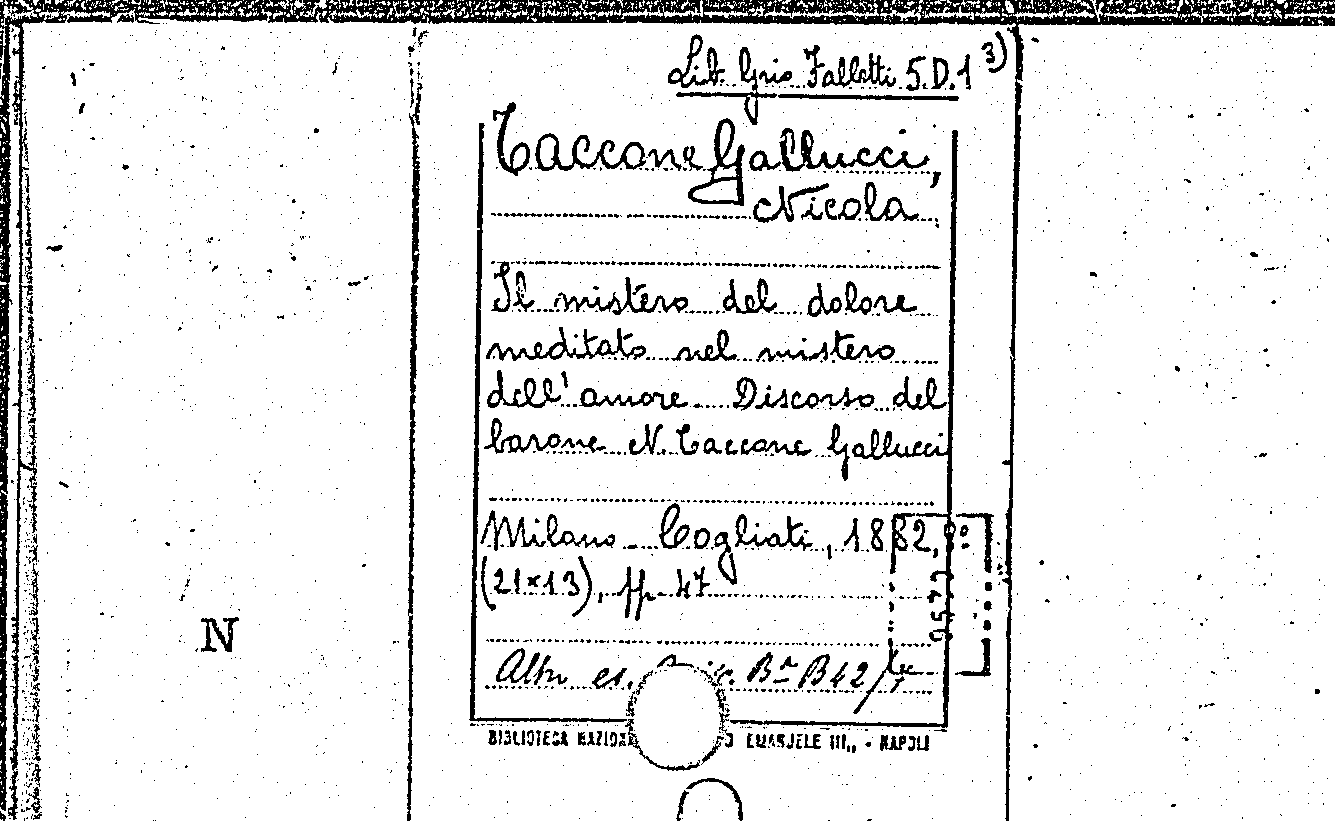 Lib. Grio Falletti 5.D.1 3)
Taccone Gallucci,
Nicola
Il mistero del dolore
meditato nel mistero
dell'amore. Discorso del
barone N. Taccone Gallucci
Milano. Cogliati, 1882, 8°
(21×13), pp. 47
N
Altro es. B.ª B42/
BIBLIOTECA NAZIONA EMANUELE III„ - NAPOLI